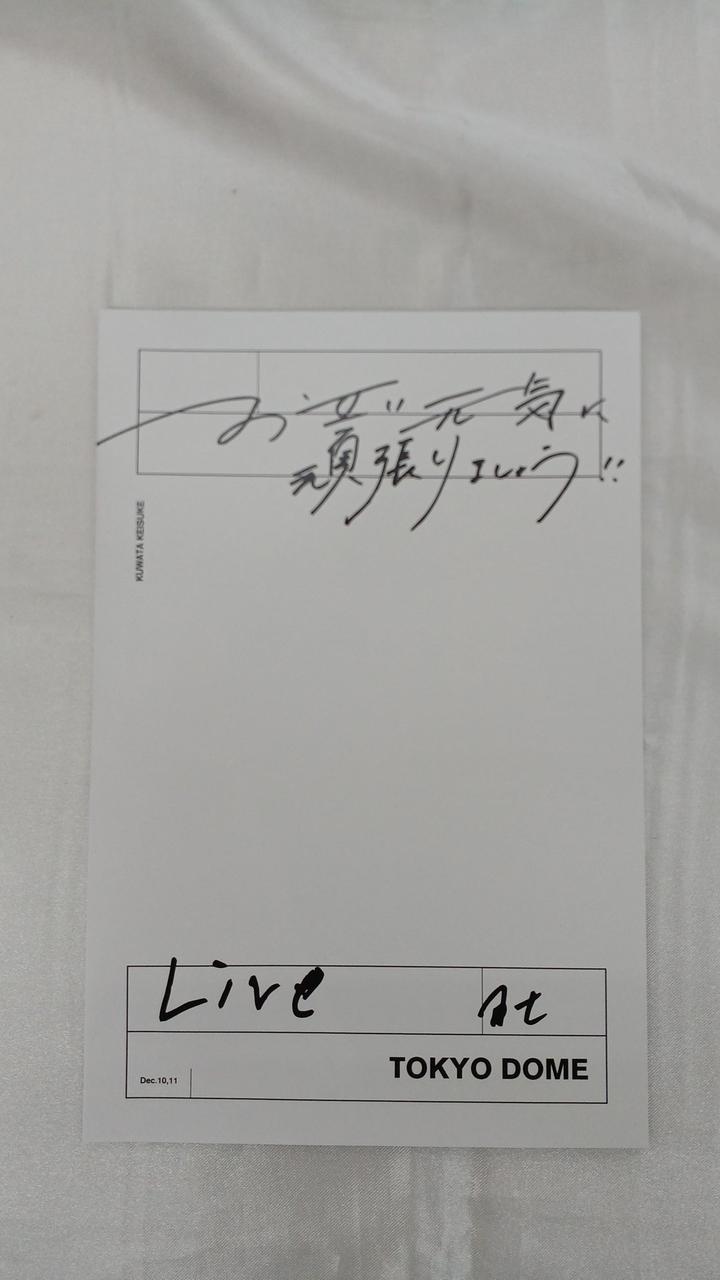 お互い元気に
頑張りましょう!!
KUWATA KEISUKE
Live At
TOKYO DOME
Dec.10,11